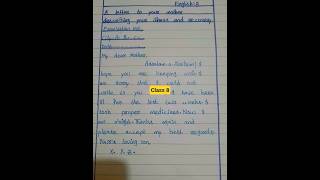 English B
A letter to your mother
describing your illness and recovery.
Examination Hall,
My dear mother,
Assalam-o-Alaikum! I
hope you are keeping well. I
am sorry that I could not
write to you. I have been
ill for the last two weeks. I
took proper medicines. Now I
am alright. Thanks again and
please accept my best regards.
Yours loving son,
X. Y. Z.
Class 8